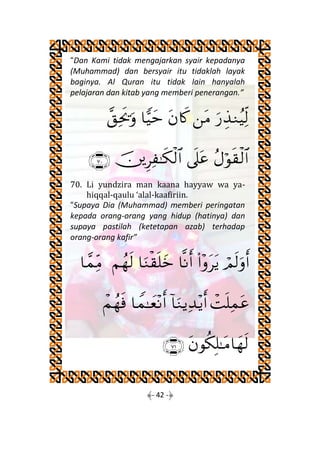 "Dan Kami tidak mengajarkan syair kepadanya
(Muhammad) dan bersyair itu tidaklah layak
baginya. Al Quran itu tidak lain hanyalah
pelajaran dan kitab yang memberi penerangan."
لِّيُنذِرَ مَن كَانَ حَيًّا وَيَحِقَّ
ٱلْقَوْلُ عَلَى ٱلْكَـٰفِرِينَ ﴿٧٠﴾
70. Li yundzira man kaana hayyaw wa ya-
hiqqal-qaulu 'alal-kaafiriin.
"Supaya Dia (Muhammad) memberi peringatan
kepada orang-orang yang hidup (hatinya) dan
supaya pastilah (ketetapan azab) terhadap
orang-orang kafir"
أَوَلَمْ يَرَوْا۟ أَنَّا خَلَقْنَا لَهُم مِّمَّا
عَمِلَتْ أَيْدِينَآ أَنْعَـٰمًا فَهُمْ
لَهَا مَـٰلِكُونَ ﴿٧١﴾
- 42 -